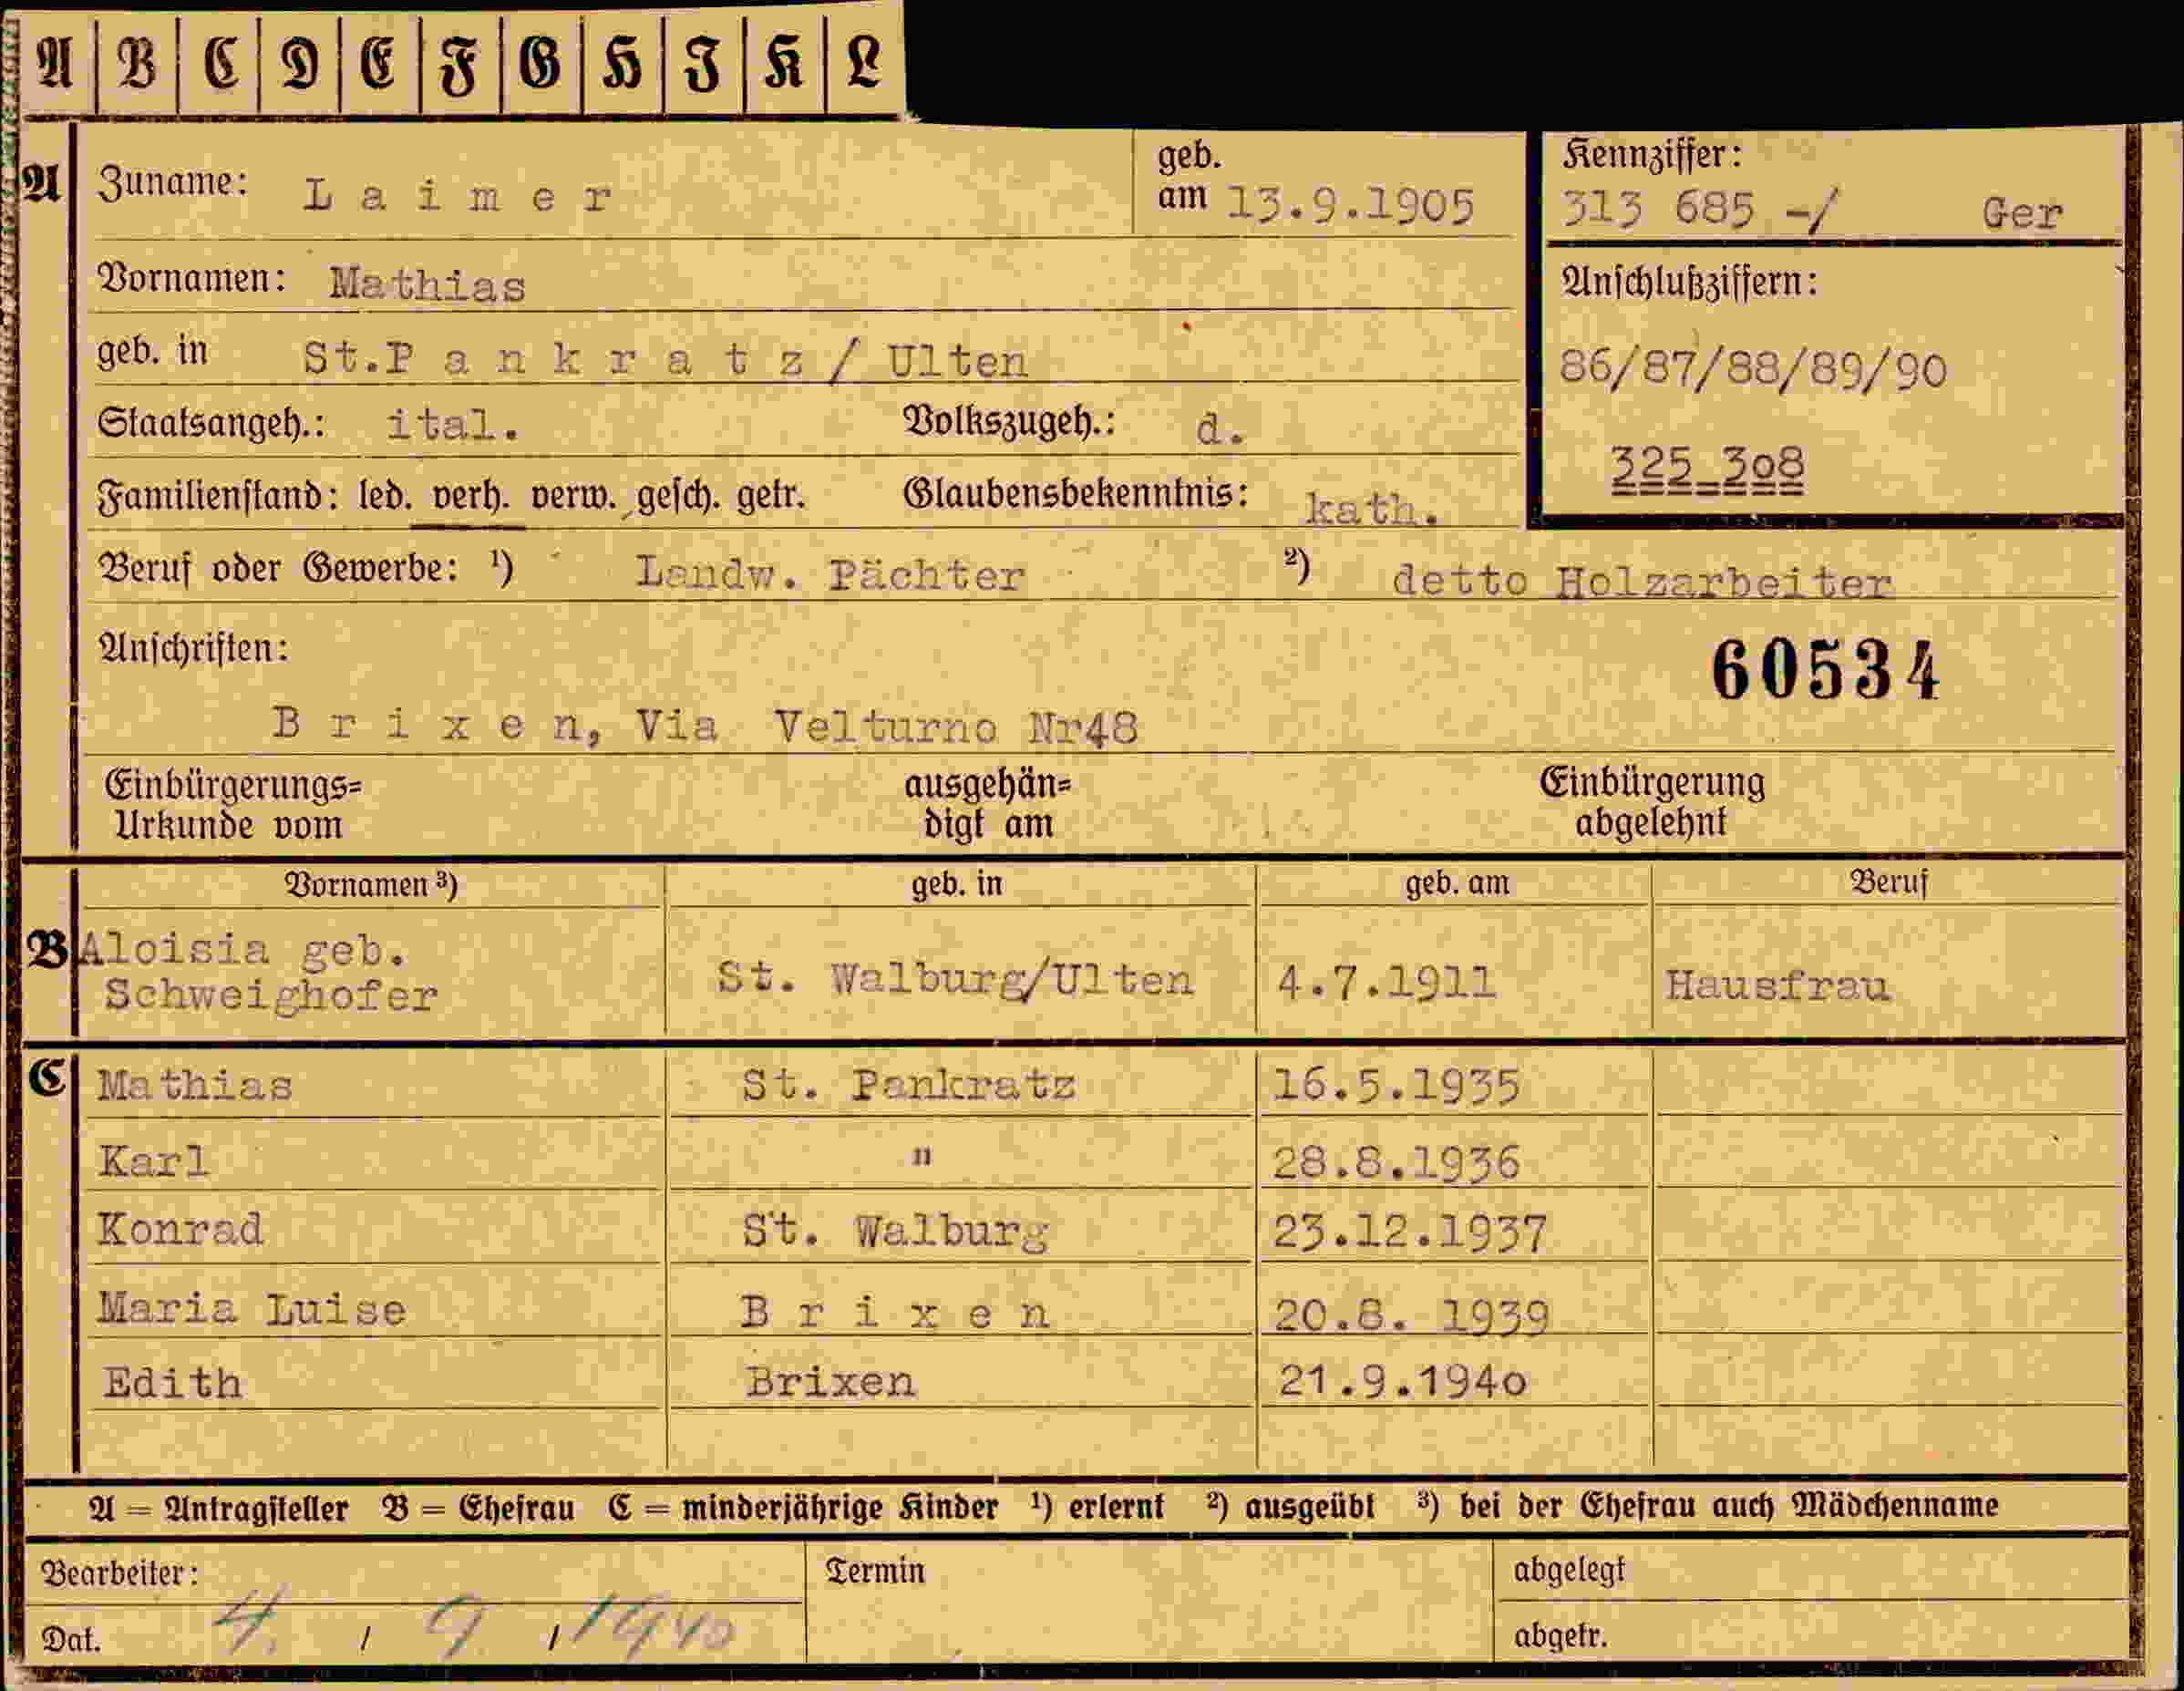 A B C D E F G H I K L
A Zuname: L a i m e r geb. am 13.9.1905 Kennziffer: 313 685 -/ Ger
Vornamen: Mathias Anschlußziffern:
geb. in St.P a n k r a t z / Ulten 86/87/88/89/90
Staatsangeh.: ital. Volkszugeh.: d. 325 308
Familienstand: led. verh. verw. gesch. getr. Glaubensbekenntnis: kath.
Beruf oder Gewerbe: ¹) Landw. Pächter ²) detto Holzarbeiter
Anschriften: 60534
B r i x e n, Via Velturno Nr48
Einbürgerungs= ausgehän= Einbürgerung
Urkunde vom digt am abgelehnt
Vornamen ³) geb. in geb. am Beruf
B Aloisia geb.
Schweighofer St. Walburg/Ulten 4.7.1911 Hausfrau
C Mathias St. Pankratz 16.5.1935
Karl " 28.8.1936
Konrad St. Walburg 23.12.1937
Maria Luise B r i x e n 20.8. 1939
Edith Brixen 21.9.194o
A = Antragsteller B = Ehefrau C = minderjährige Kinder ¹) erlernt ²) ausgeübt ³) bei der Ehefrau auch Mädchenname
Bearbeiter: Termin abgelegt
Dat. 4. / 9 / 1940 abgetr.